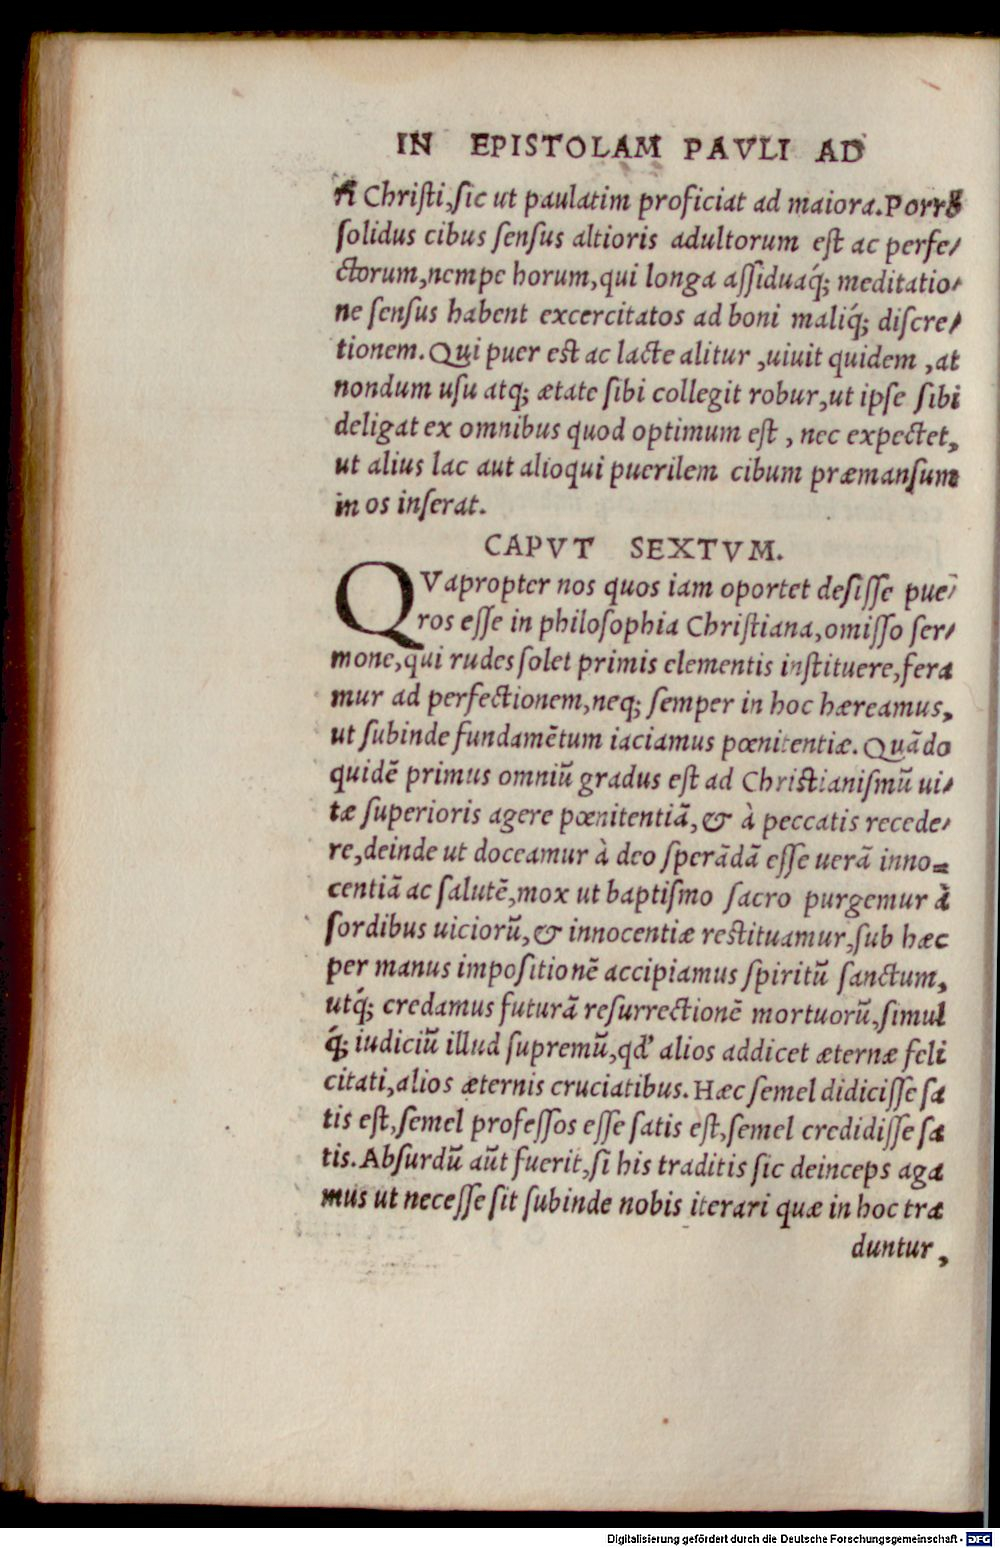 IN EPISTOLAM PAVLI AD
A Christi, sic ut paulatim proficiat ad maiora. Porrò
ſolidus cibus ſenſus altioris adultorum eſt ac perfe-
ctorum, nempe horum, qui longa aſſiduaq́; meditatio-
ne ſenſus habent excercitatos ad boni maliq́; diſcre-
tionem. Qui puer eſt ac lacte alitur, uiuit quidem, at
nondum uſu atq; ætate ſibi collegit robur, ut ipſe ſibi
deligat ex omnibus quod optimum eſt, nec expectet,
ut alius lac aut alioqui puerilem cibum præmanſum
in os inſerat.
CAPVT SEXTVM.
QVapropter nos quos iam oportet deſiſſe pue-
ros eſſe in philoſophia Chriſtiana, omiſſo ſer-
mone, qui rudes ſolet primis elementis inſtituere, fera
mur ad perfectionem, neq; ſemper in hoc hæreamus,
ut ſubinde fundamētum iaciamus pœnitentiæ. Quādo
quidē primus omniū gradus eſt ad Chriſtianiſmū ui-
tæ ſuperioris agere pœnitentiā, & à peccatis recede-
re, deinde ut doceamur à deo ſperādā eſſe uerā inno-
centiā ac ſalutē, mox ut baptiſmo ſacro purgemur à
ſordibus uiciorū, & innocentiæ reſtituamur, ſub hæc
per manus impoſitionē accipiamus ſpiritū ſanctum,
utq́; credamus futurā reſurrectionē mortuorū, ſimul
q́; iudiciū illud ſupremū, qd' alios addicet æternæ feli
citati, alios æternis cruciatibus. Hæc ſemel didiciſſe ſa
tis eſt, ſemel profeſſos eſſe ſatis eſt, ſemel credidiſſe ſa
tis. Abſurdū aūt fuerit, ſi his traditis ſic deinceps aga
mus ut neceſſe ſit ſubinde nobis iterari quæ in hoc tra
duntur,
Digitalisierung gefördert durch die Deutsche Forschungsgemeinschaft - DFG